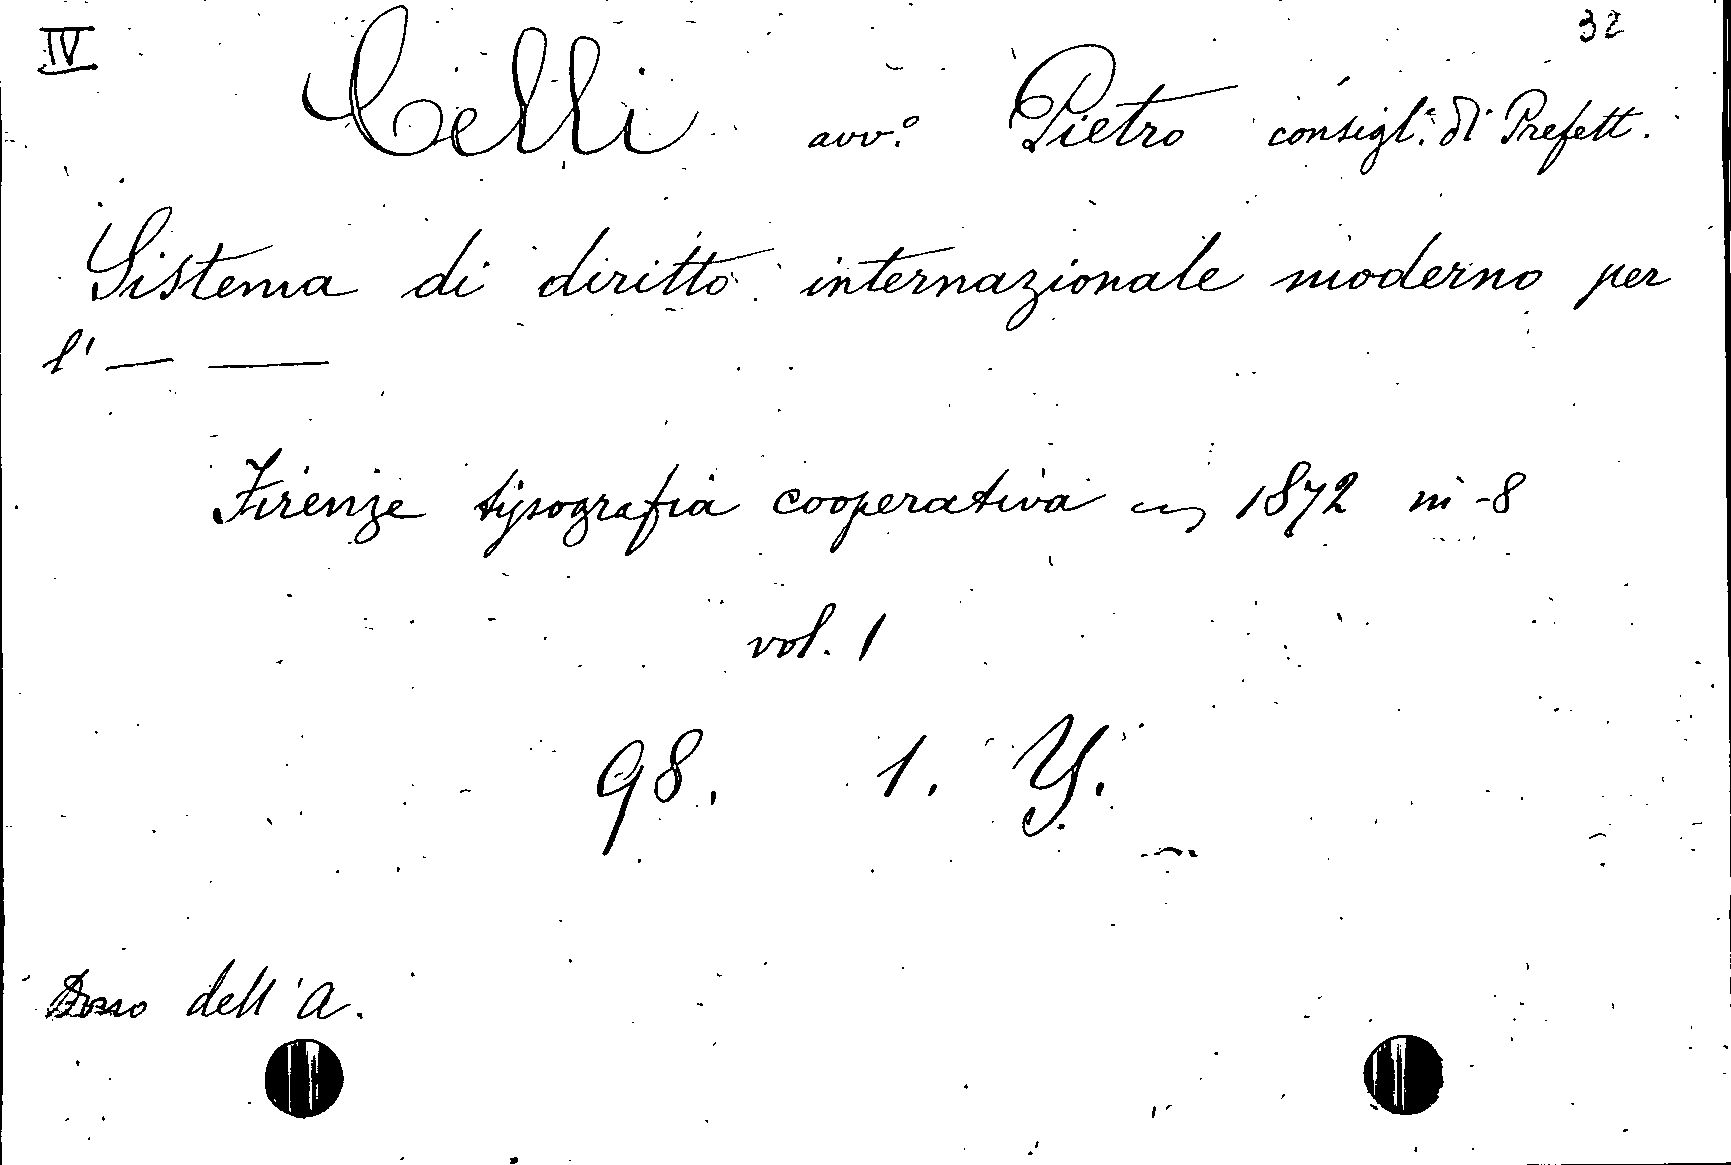 IV
32
Celli avv.º Pietro consigl.e di Prefett.
Sistema di diritto internazionale moderno per
l' — —
Firenze tipografia cooperativa 1872 in-8
vol. 1
98. 1. Y.
dell'A.